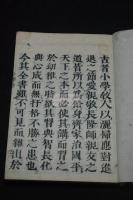 古者小學敎人以灑掃應對進
退之節愛親敬長隆師親友之
道皆所以爲脩身齊家治國平
天下之本而必使其講而習之
於幼穉之時欲其習與智長化
與心成而無扞格不勝之患也
今其全書雖不可見而雜出於